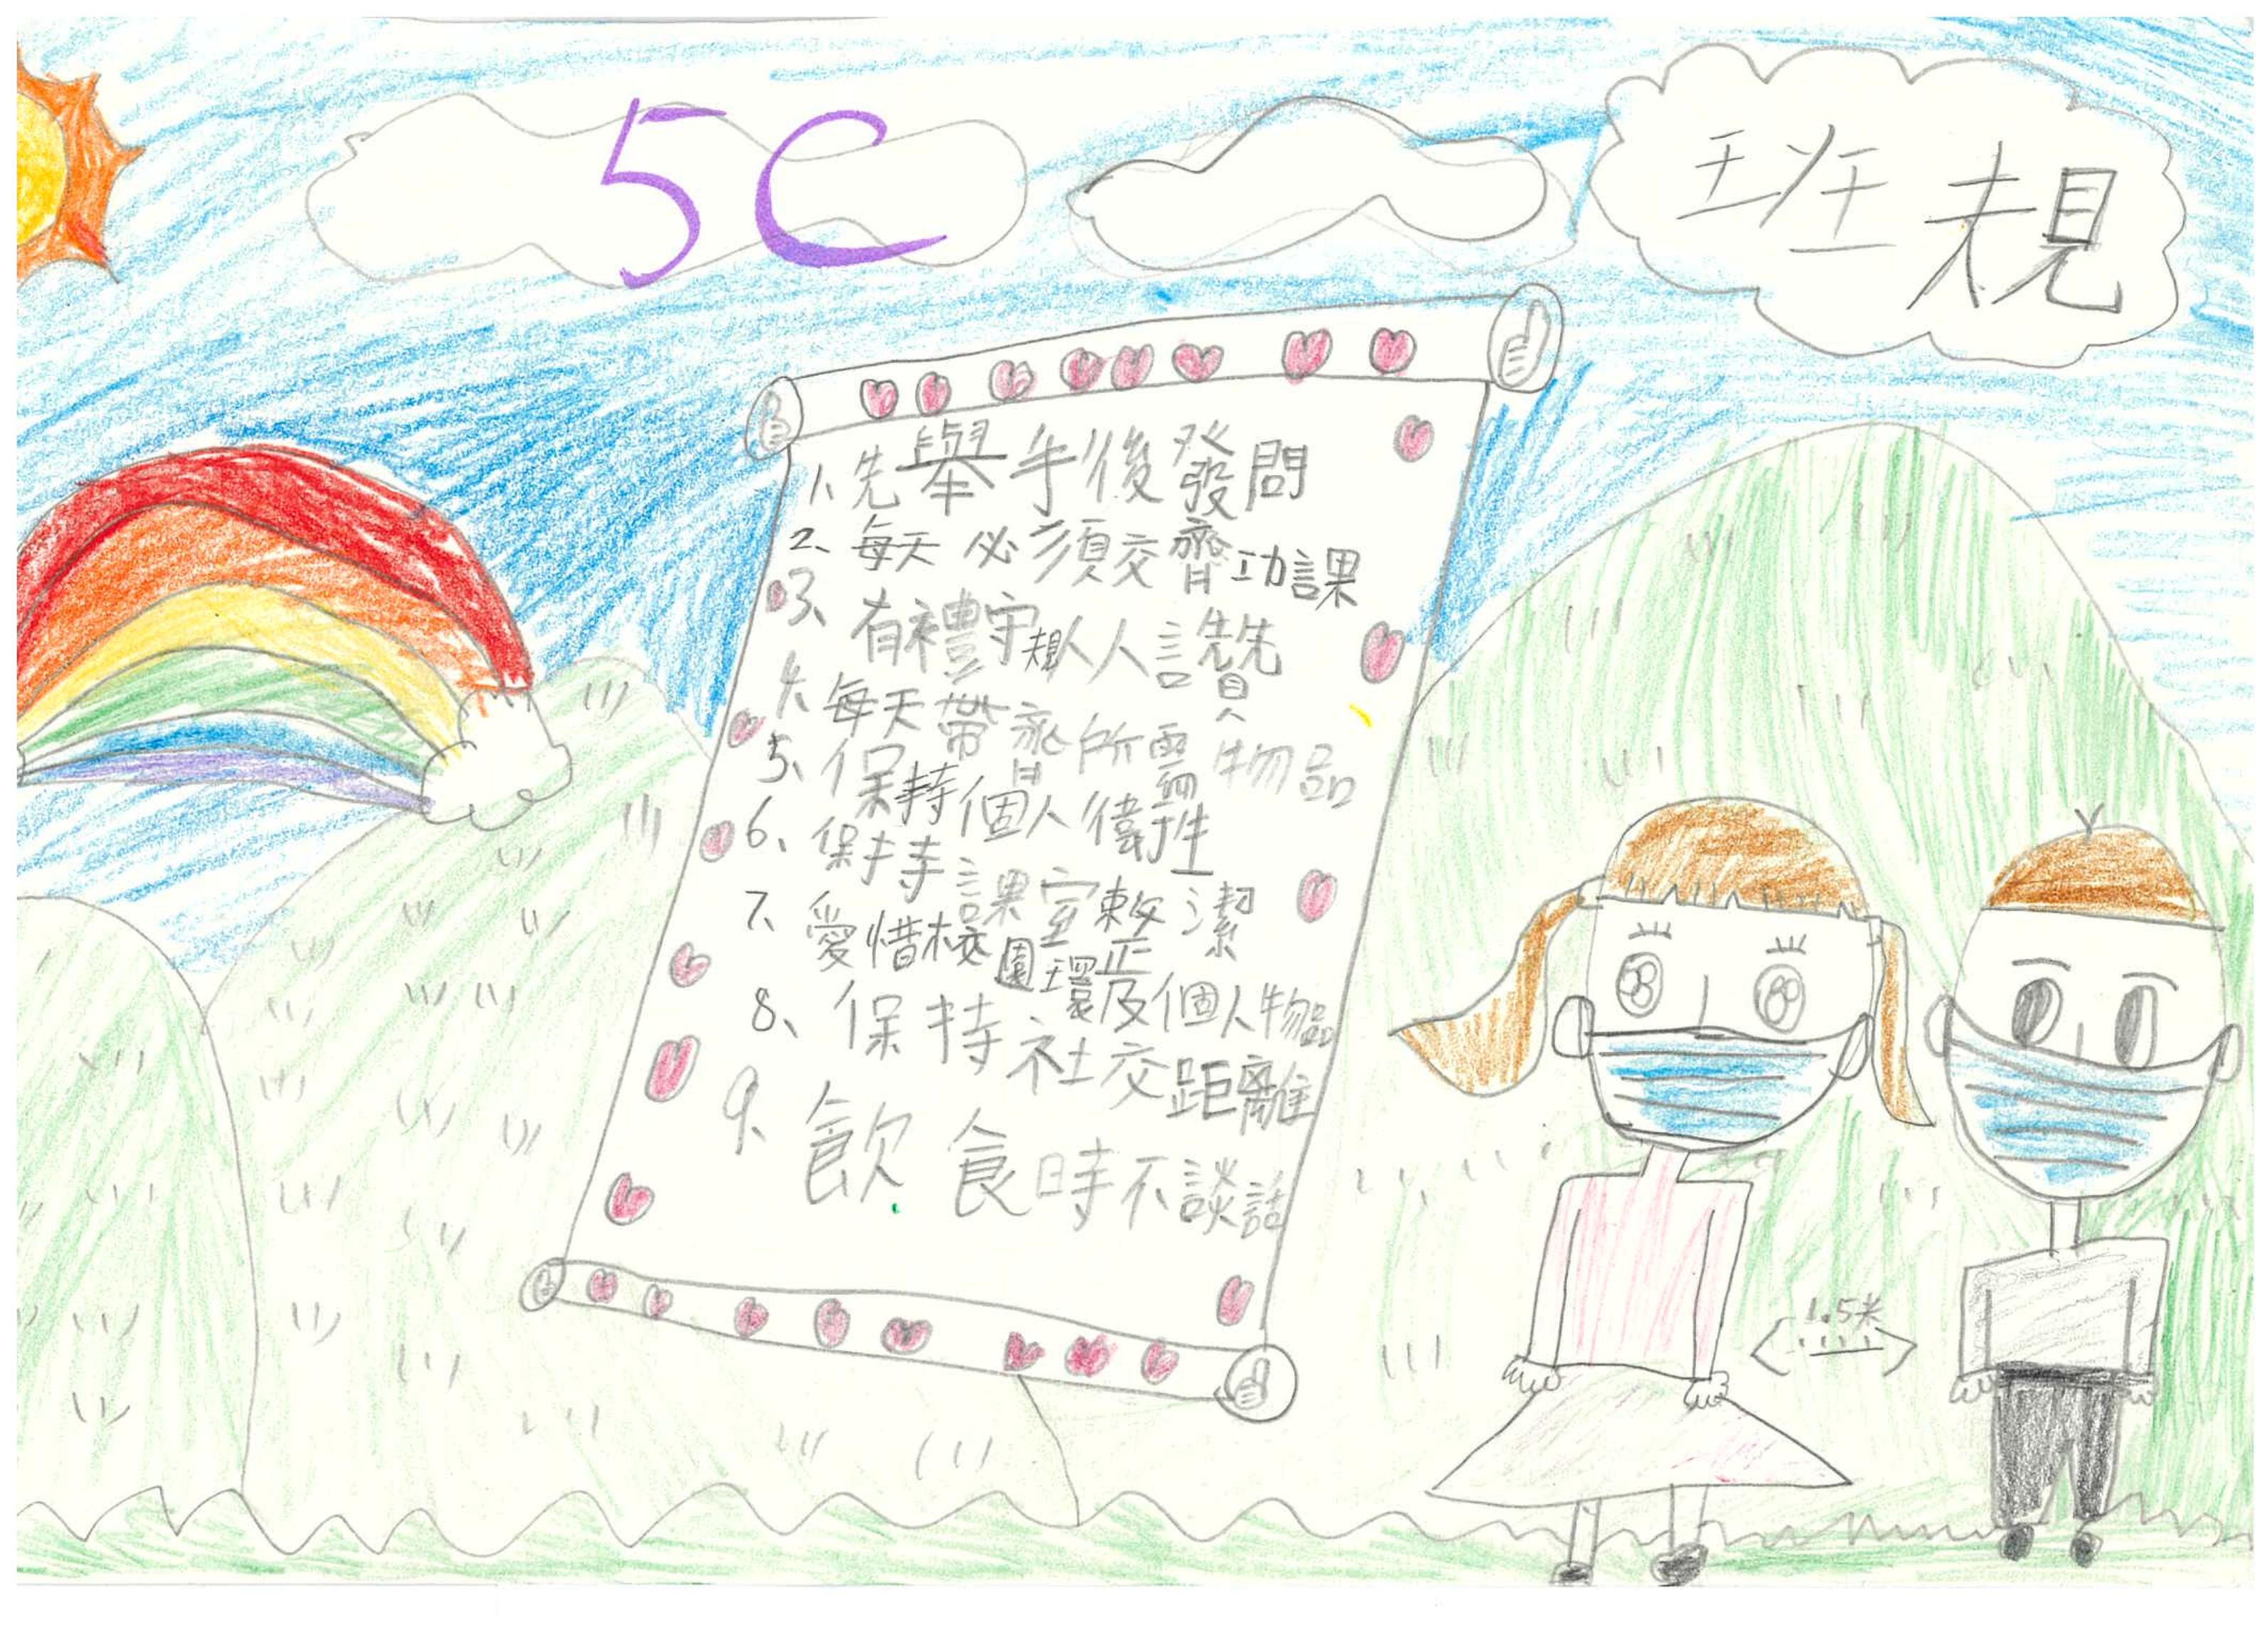 5C
班規
1、先舉手後發問
2、每天必須交齊功課
3、有禮守規人人讚
4、每天帶齊所需物品
5、保持個人衛生
6、保持課室整潔
7、愛惜校園環及個人物品
8、保持社交距離
9、飲食時不談話
1.5米